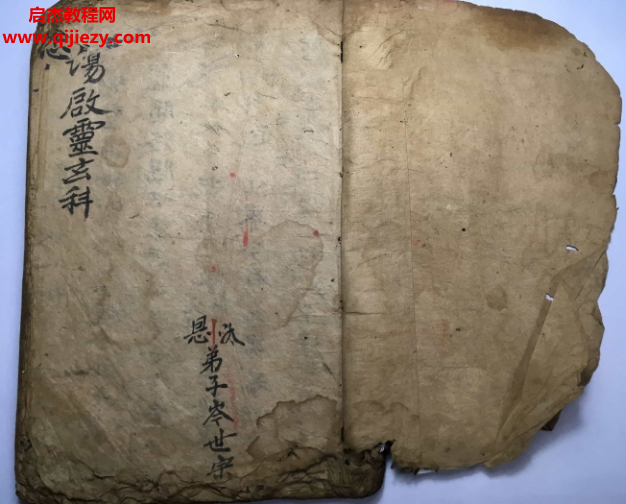 启杰教程网
www.qijiezy.com
湯啟靈玄科
沐恩
弟子岑世宗